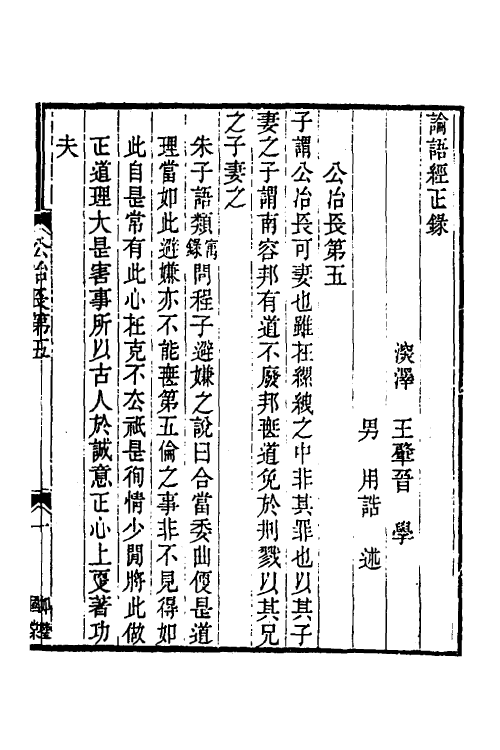 論語經正錄
滎澤　王肇晉　學
男　用誥　述
公冶長第五
子謂公冶長可妻也雖在縲絏之中非其罪也以其子
妻之子謂南容邦有道不廢邦無道免於刑戮以其兄
之子妻之
朱子語類㝢錄問程子避嫌之說曰合當委曲便是道
理當如此避嫌亦不能無第五倫之事非不見得如
此自是常有此心在克不去祇是徇情少閒將此做
正道理大是害事所以古人於誠意正心上更著功
夫
公冶長第五
一